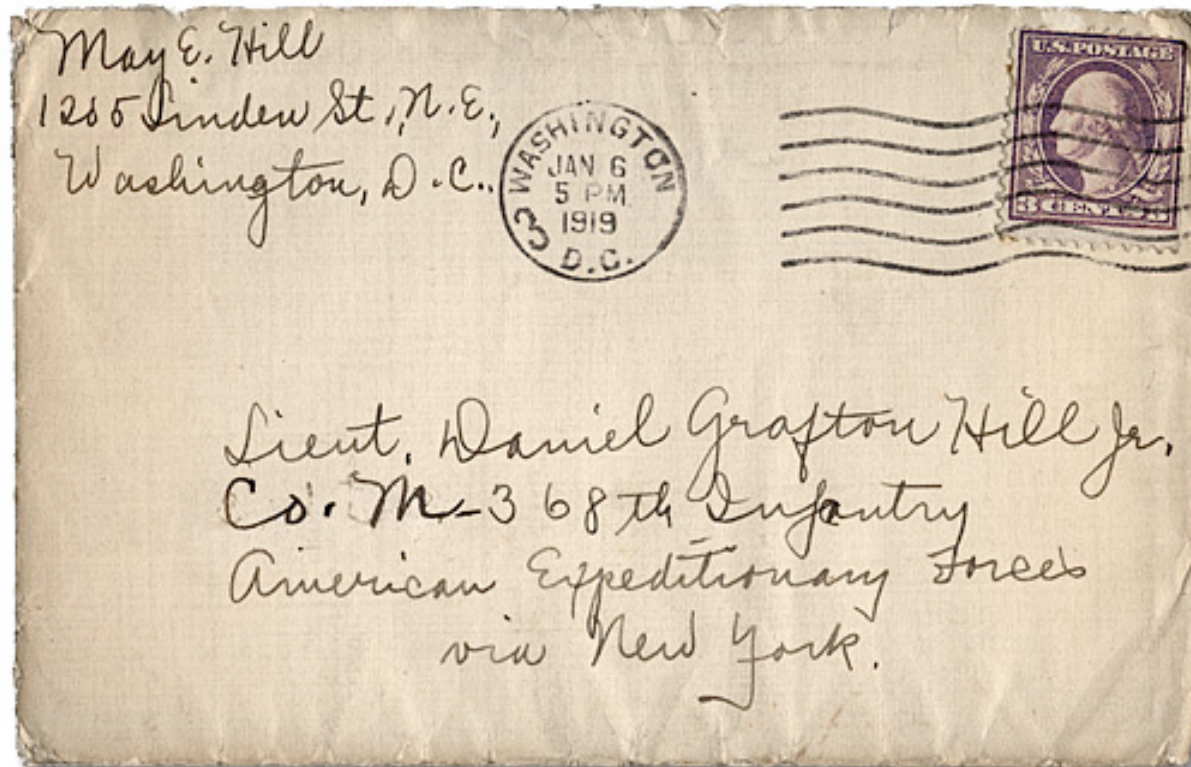 May E. Hill
1205 Linden St., N.E.,
Washington, D.C..
WASHINGTON
JAN 6
5 PM
1919
3 D.C.
U.S. POSTAGE
3 CENTS 3
Lieut. Daniel Grafton Hill Jr.
Co. M-368th Infantry
American Expeditionary Forces
via New York.